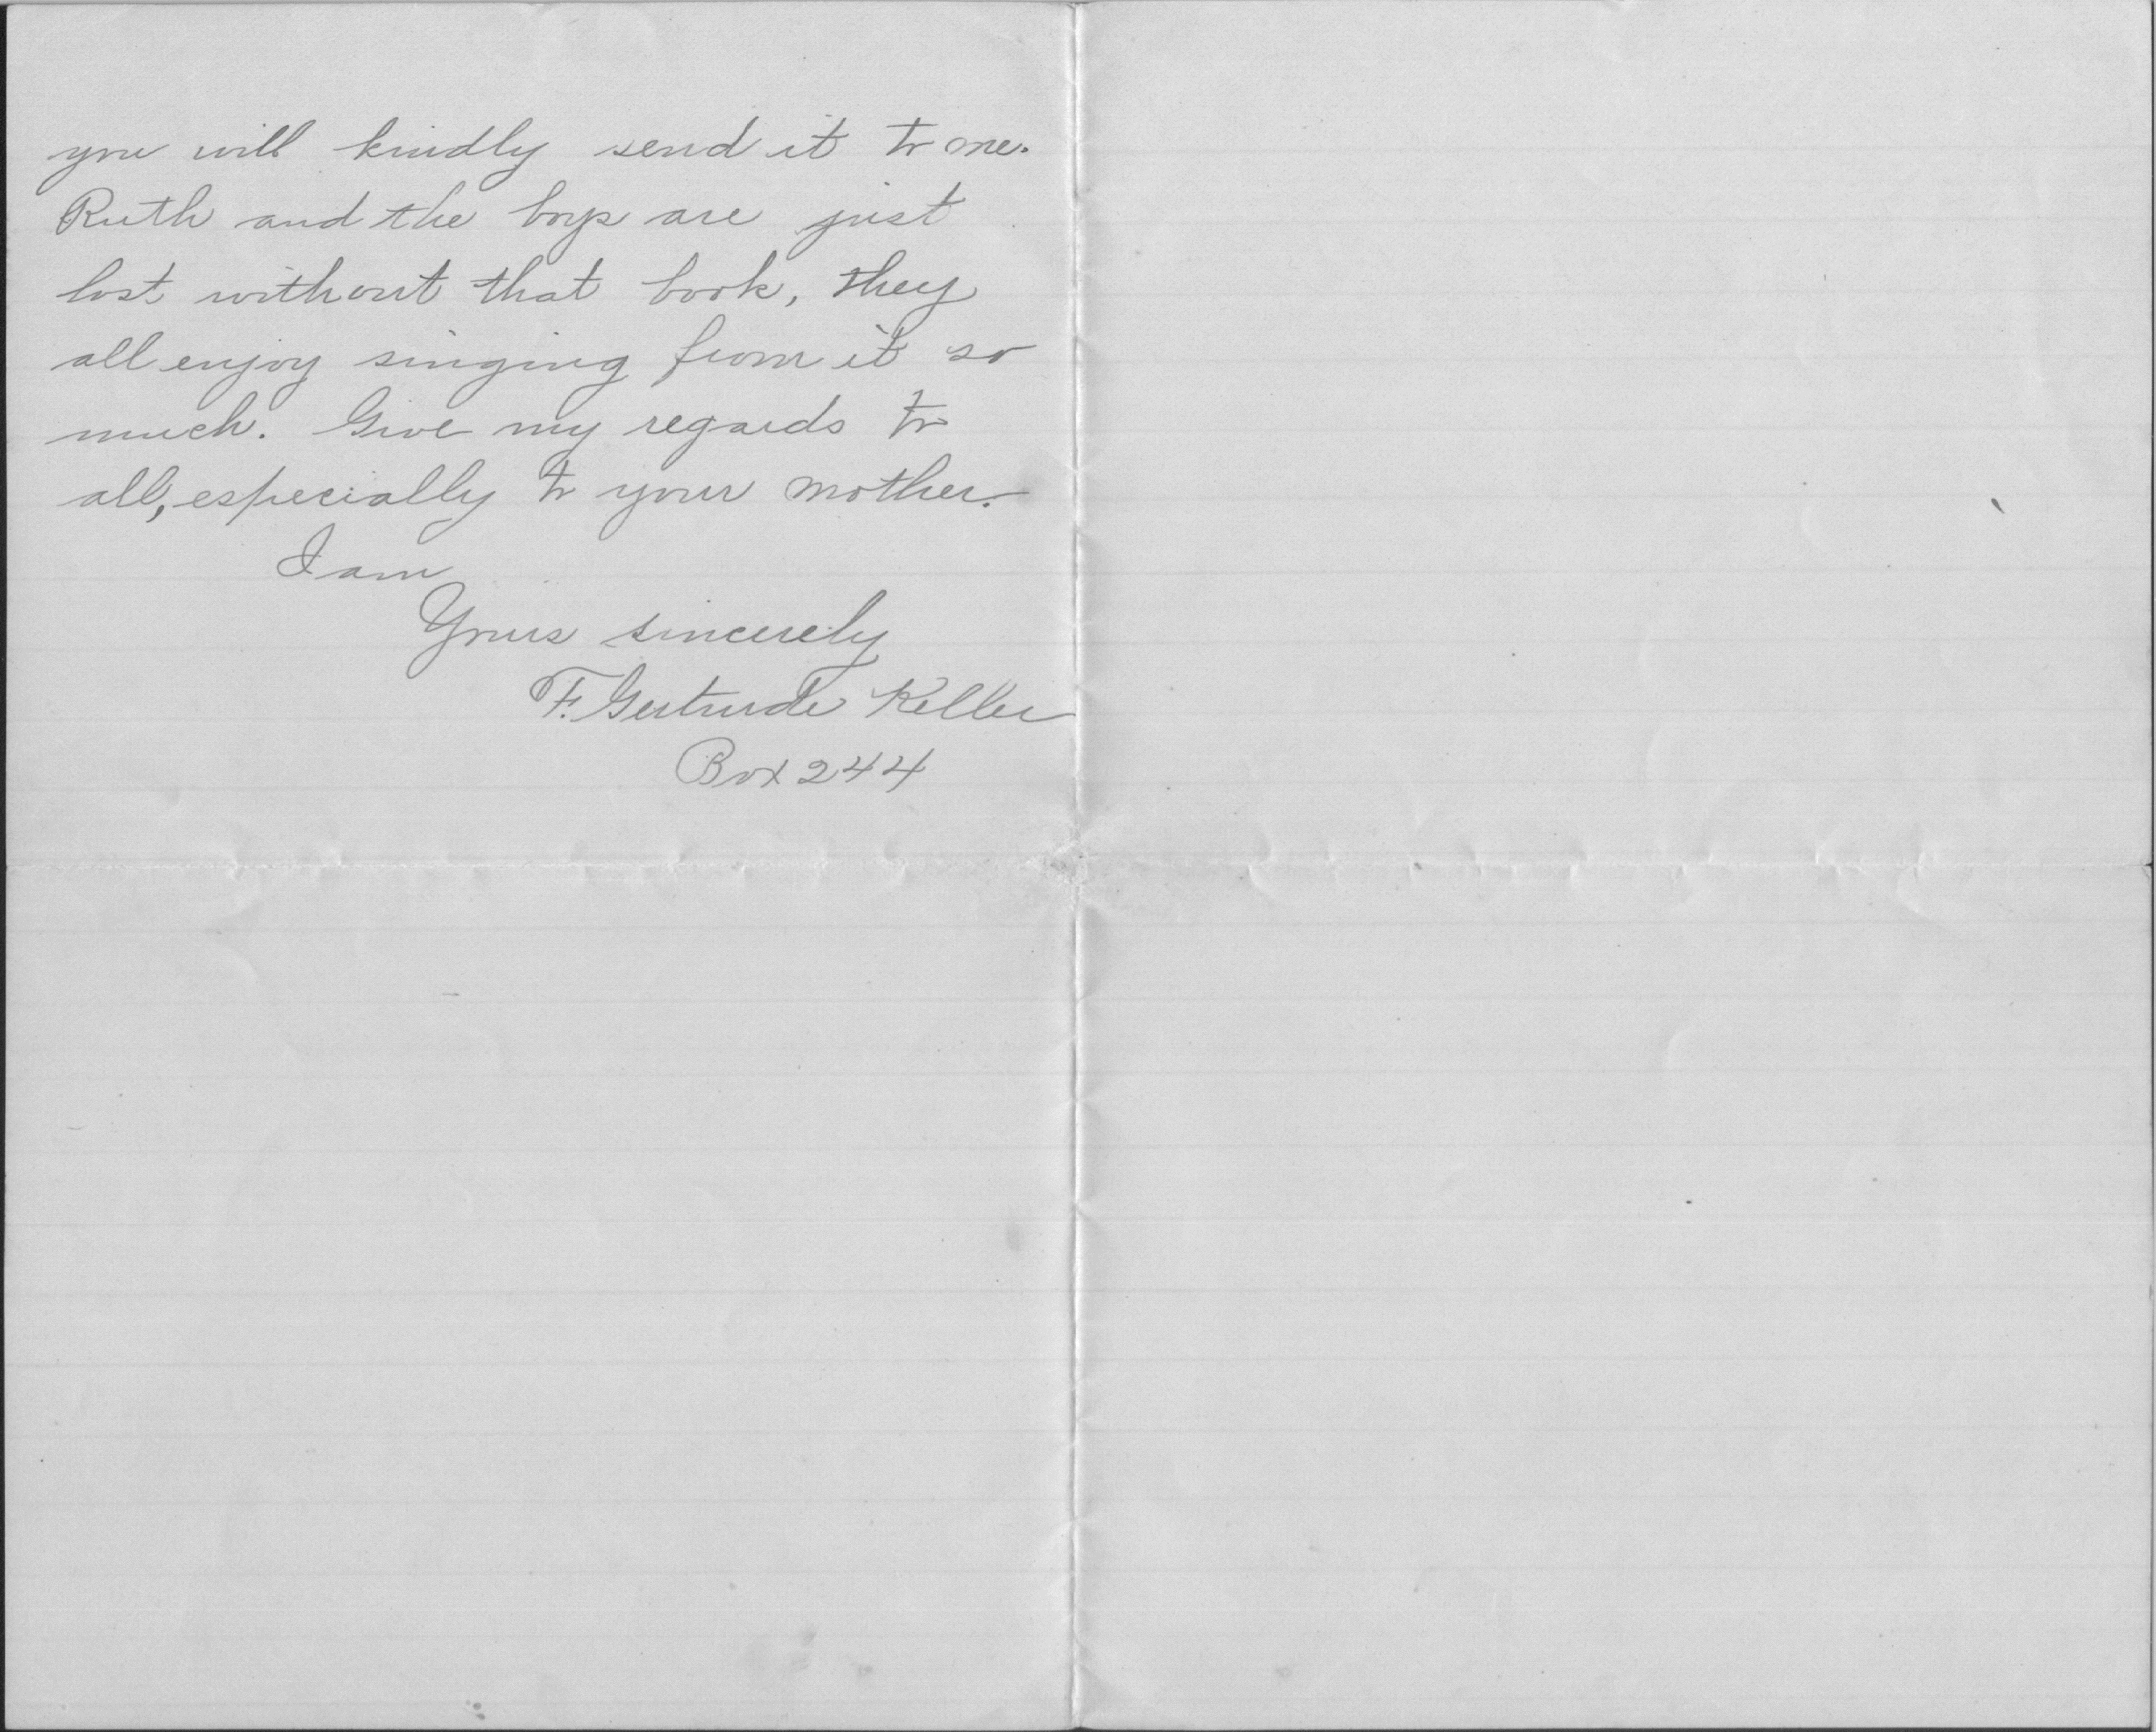 you will kindly send it to me.
Ruth and the boys are just
lost without that book, they
all enjoy singing from it so
much. Give my regards to
all, especially to your mother.
I am
Yours sincerely
F. Gertrude Keller
Box 244